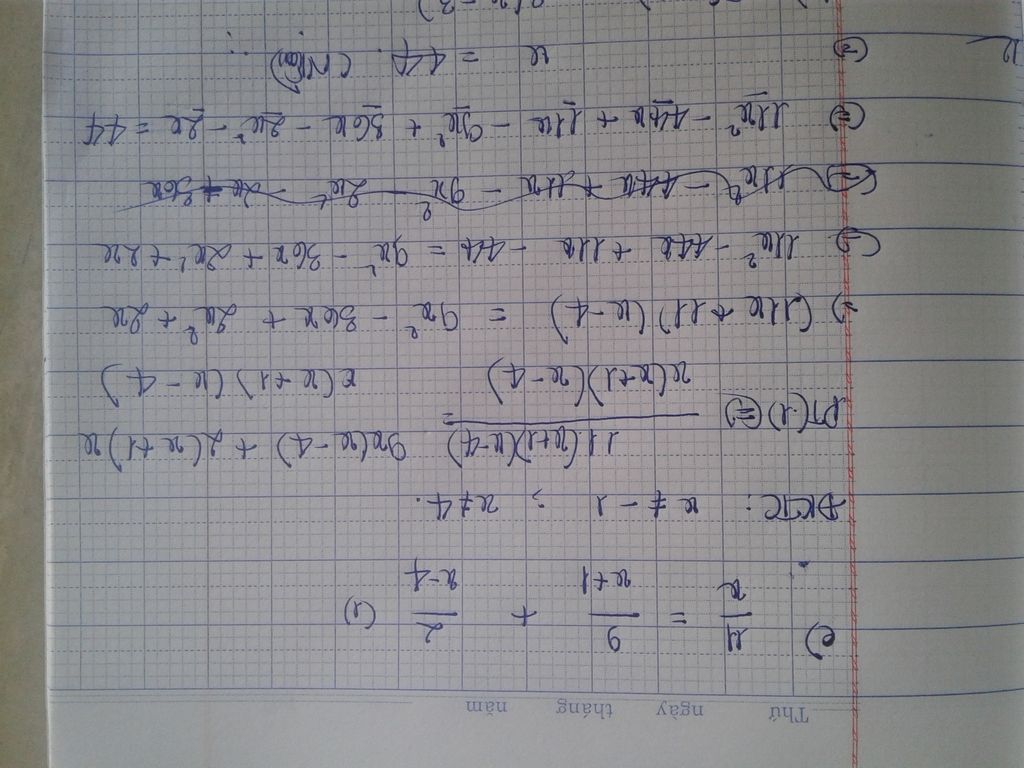 Thứ ngày tháng năm
e) 11/x = 9/(x+1) + 2/(x-4) (1)
ĐKTC: x ≠ -1 ; x ≠ 4.
PT(1) ⇔ 11(x+1)(x-4)/x(x+1)(x-4) = 9x(x-4) + 2(x+1)x/x(x+1)(x-4)
⇒ (11x + 11)(x-4) = 9x² - 36x + 2x² + 2x
⇔ 11x² - 44x + 11x - 44 = 9x² - 36x + 2x² + 2x
⇔ 11x² - 44x + 11x - 9x² + 36x - 2x² - 2x = 44
⇔ x = 44 (Nhận)
12